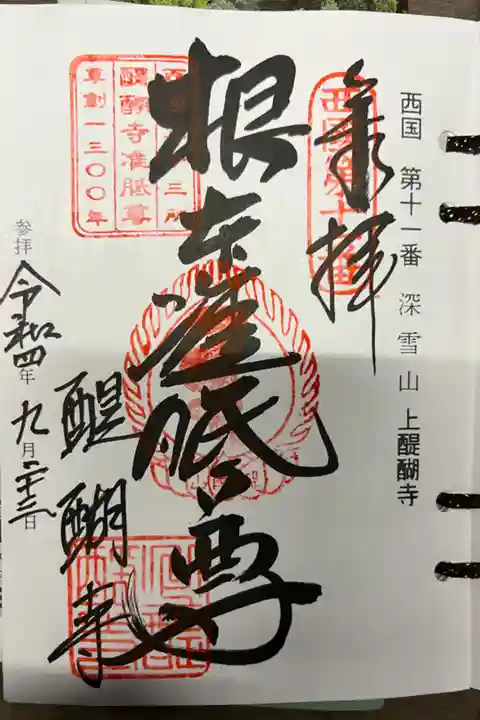 西国 第十一番 深雪山 上醍醐寺
奉拝
西国第十一番
根本准胝尊
醍醐寺准胝尊
草創一三〇〇年
醍醐寺
参拝 令和四年 九月二十三日